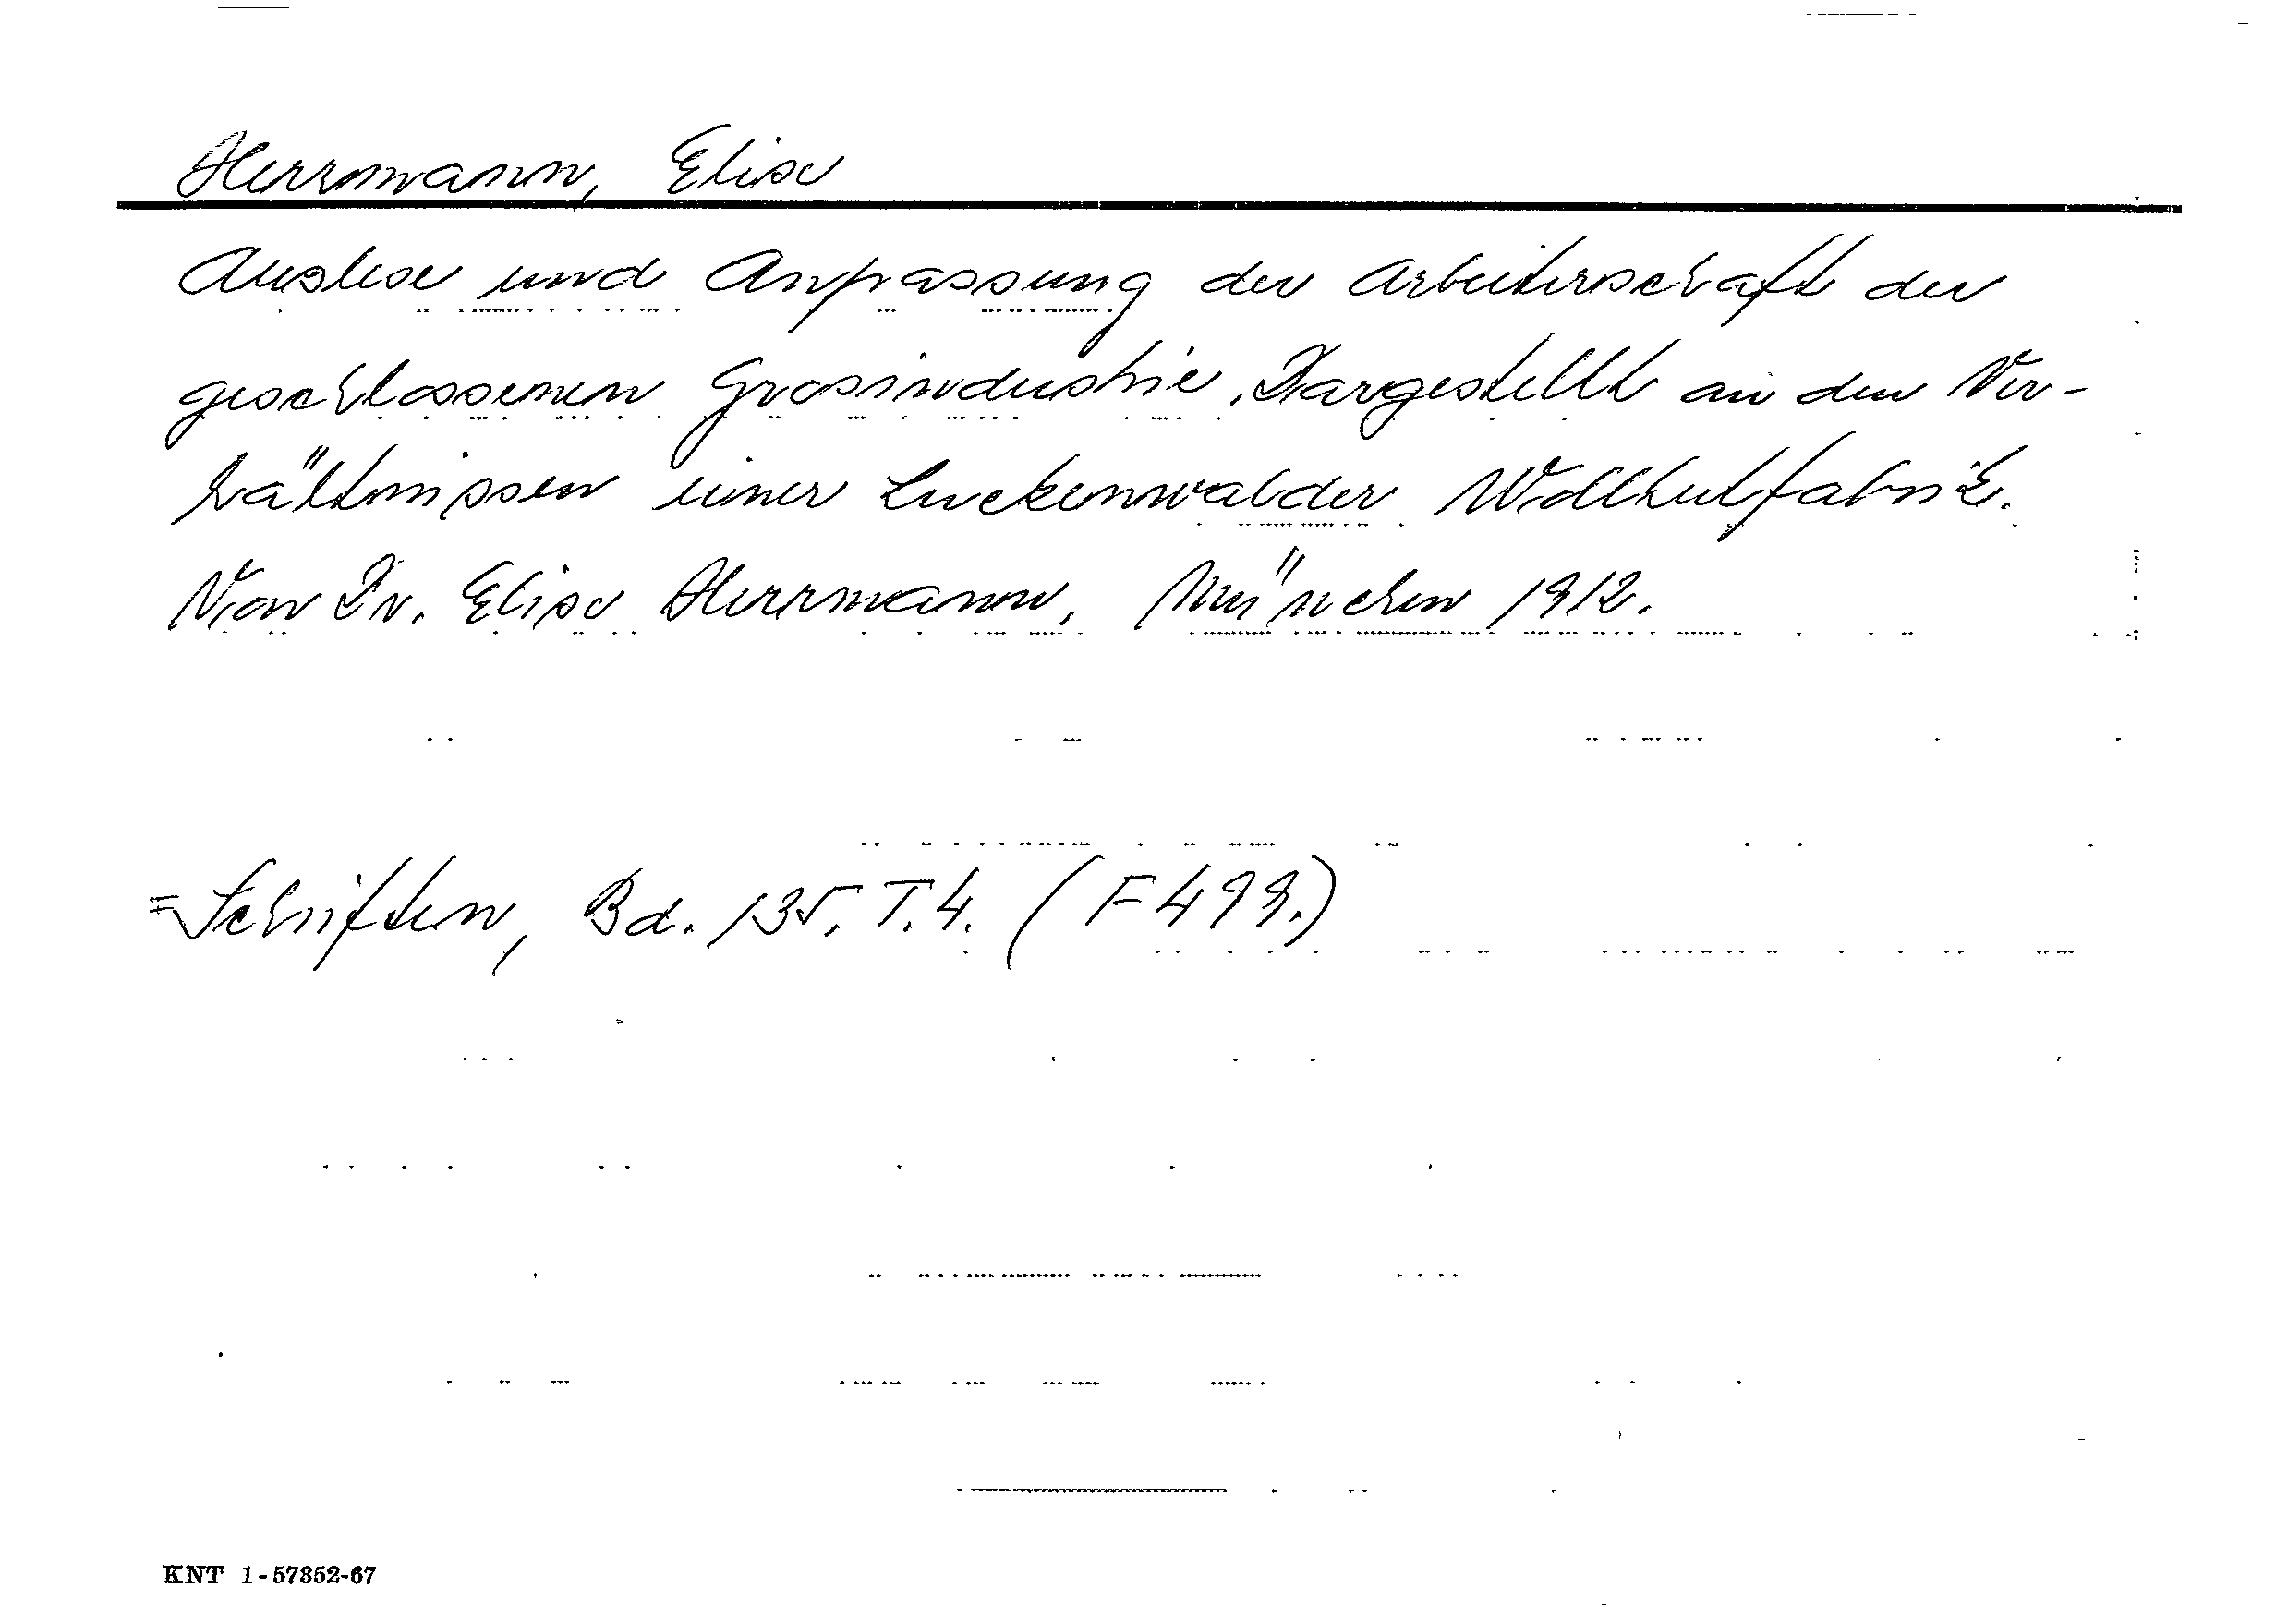 Herrmann, Elise
Auslese und Anpassung der Arbeiterschaft der
geschlossenen Grosindustrie. Dargestellt an den Ver-
hältnissen einer Luckenwalder Wollhutfabrik.
Von Dr. Elise Herrmann, München 1912.
=Schriften, Bd. 135. T.4. (F499.)
KNT 1-57852-67